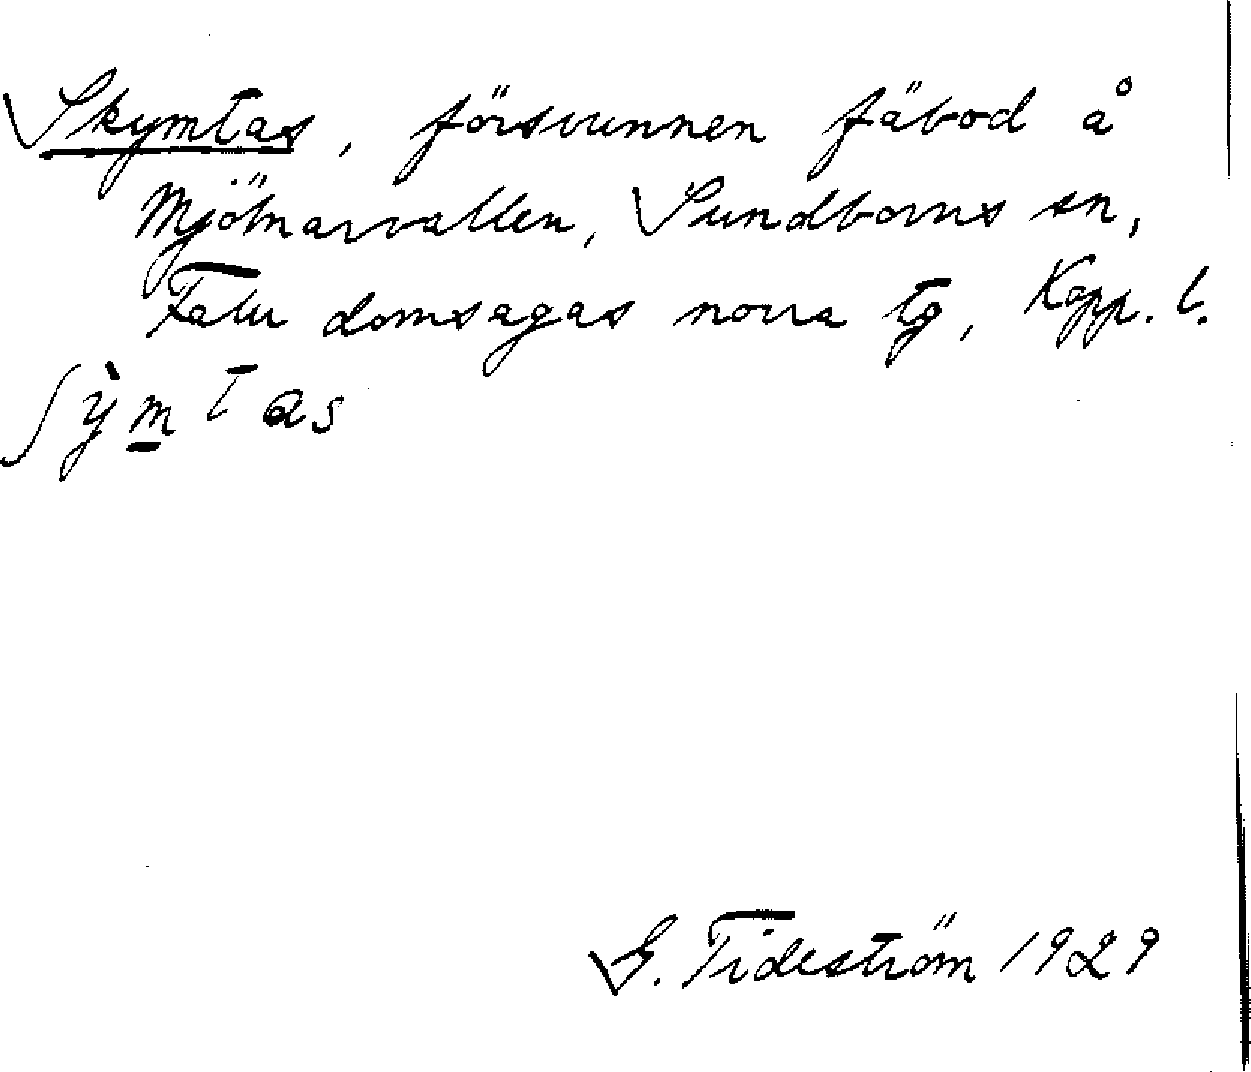 Skymtas, försvunnen fäbod å
Mjölnarvallen, Sundborns sn,
Falu domsagas norra tg, Kopp. l.
ʃỳm̲tas
G. Tideström 1929